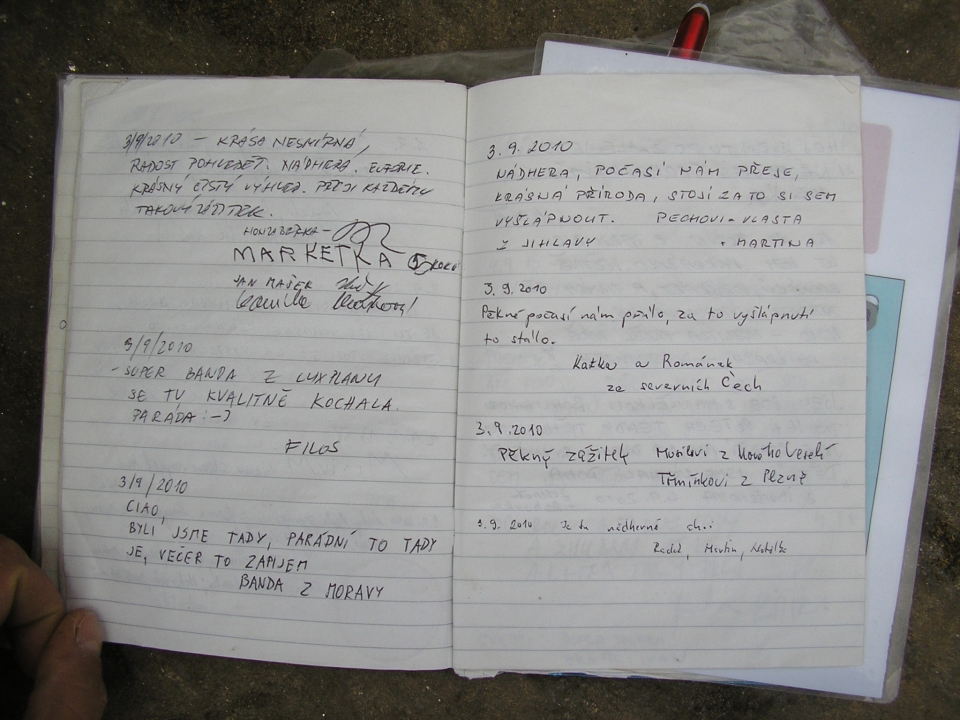 3/9/2010 – KRÁSA NESMÍRNÁ,
RADOST POHLEDĚT. NÁDHERA. EUFORIE.
KRÁSNÝ ČISTÝ VÝHLED. PŘEJI KAŽDÉMU
TAKOVÝ ZÁŽITEK.
MARKETKA 5 ROKŮ
JAN MAŠEK
Kamila
3/9/2010
- SUPER BANDA Z LUXPLANU
SE TU KVALITNĚ KOCHALA.
PARÁDA :-)
FILOS
3/9/2010
CIAO,
BYLI JSME TADY, PARÁDNÍ TO TADY
JE, VEČER TO ZAPIJEM
BANDA Z MORAVY
3.9.2010
NÁDHERA, POČASÍ NÁM PŘEJE,
KRÁSNÁ PŘÍRODA, STOJÍ ZA TO SI SEM
VYŠLÁPNOUT. PECHOVI - VLASTA
Z JIHLAVY + MARTINA
3.9.2010
Pěkné počasí nám přálo, za to vyšlápnutí
to stálo.
Katka a Románek
ze severních Čech
3.9.2010
Pěkný zážitek z Nového Veselí
Třmínkovi z Plzně
3.9.2010 Je tu nádherně
Radek, Martin,